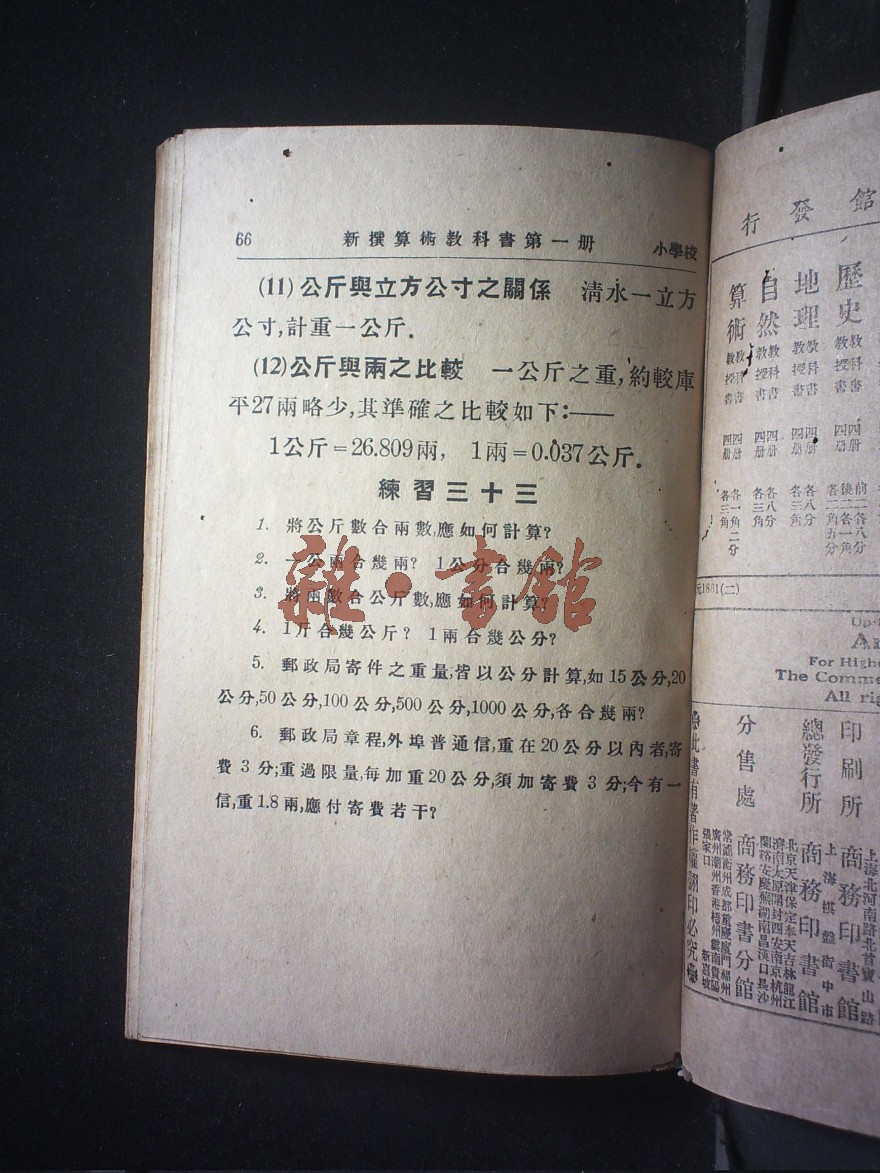 66 新撰算術教科書第一册 小學校
(11) 公斤與立方公寸之關係 清水一立方
公寸,計重一公斤.
(12) 公斤與兩之比較 一公斤之重,約較庫
平27兩略少,其準確之比較如下:——
1公斤=26.809兩, 1兩=0.037公斤.
練習三十三
1. 將公斤數合兩數,應如何計算?
2. 一公兩合幾兩? 1公分合幾兩?
3. 將兩數合公斤數,應如何計算?
4. 1斤合幾公斤? 1兩合幾公分?
5. 郵政局寄件之重量,皆以公分計算,如15公分,20
公分,50公分,100公分,500公分,1000公分,各合幾兩?
6. 郵政局章程,外埠普通信,重在20公分以內者,寄
費3分;重過限量,每加重20公分,須加寄費3分;今有一
信,重1.8兩,應付寄費若干?
雜·書館
館發行
歷史
地理
自然
算術
The Comme
For High
All rig
印刷所
商務印書館
上海北河南路北首寶山路
總發行所
商務印書館
上海棋盤街中市
分售處
商務印書分館
此書有著作權翻印必究